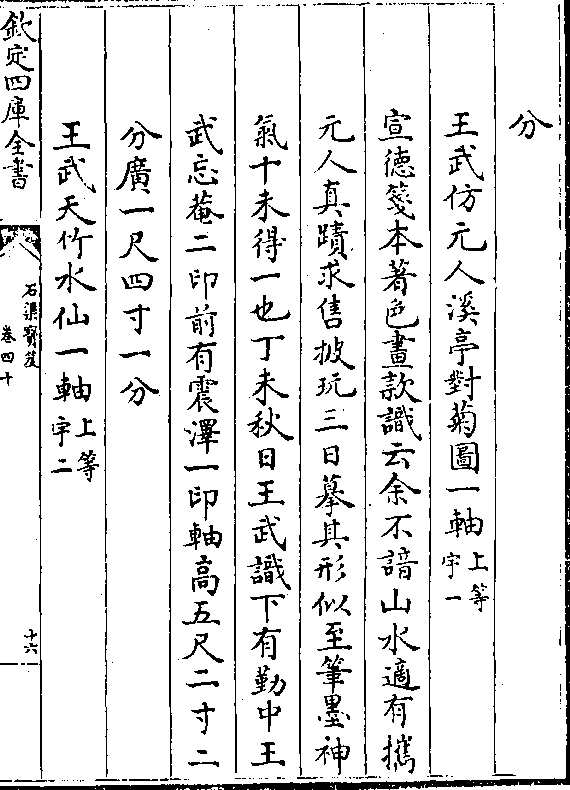 分
王武仿元人溪亭對菊圖一軸上等宇一
宣德箋本著色畫款識云余不諳山水適有攜
元人真蹟求售披玩三日摹其形似至筆墨神
氣十未得一也丁未秋日王武識下有勤中王
武忘菴二印前有震澤一印軸高五尺二寸二
分廣一尺四寸一分
王武天竹水仙一軸上等宇二
欽定四庫全書
石渠寳笈
卷四十
十六